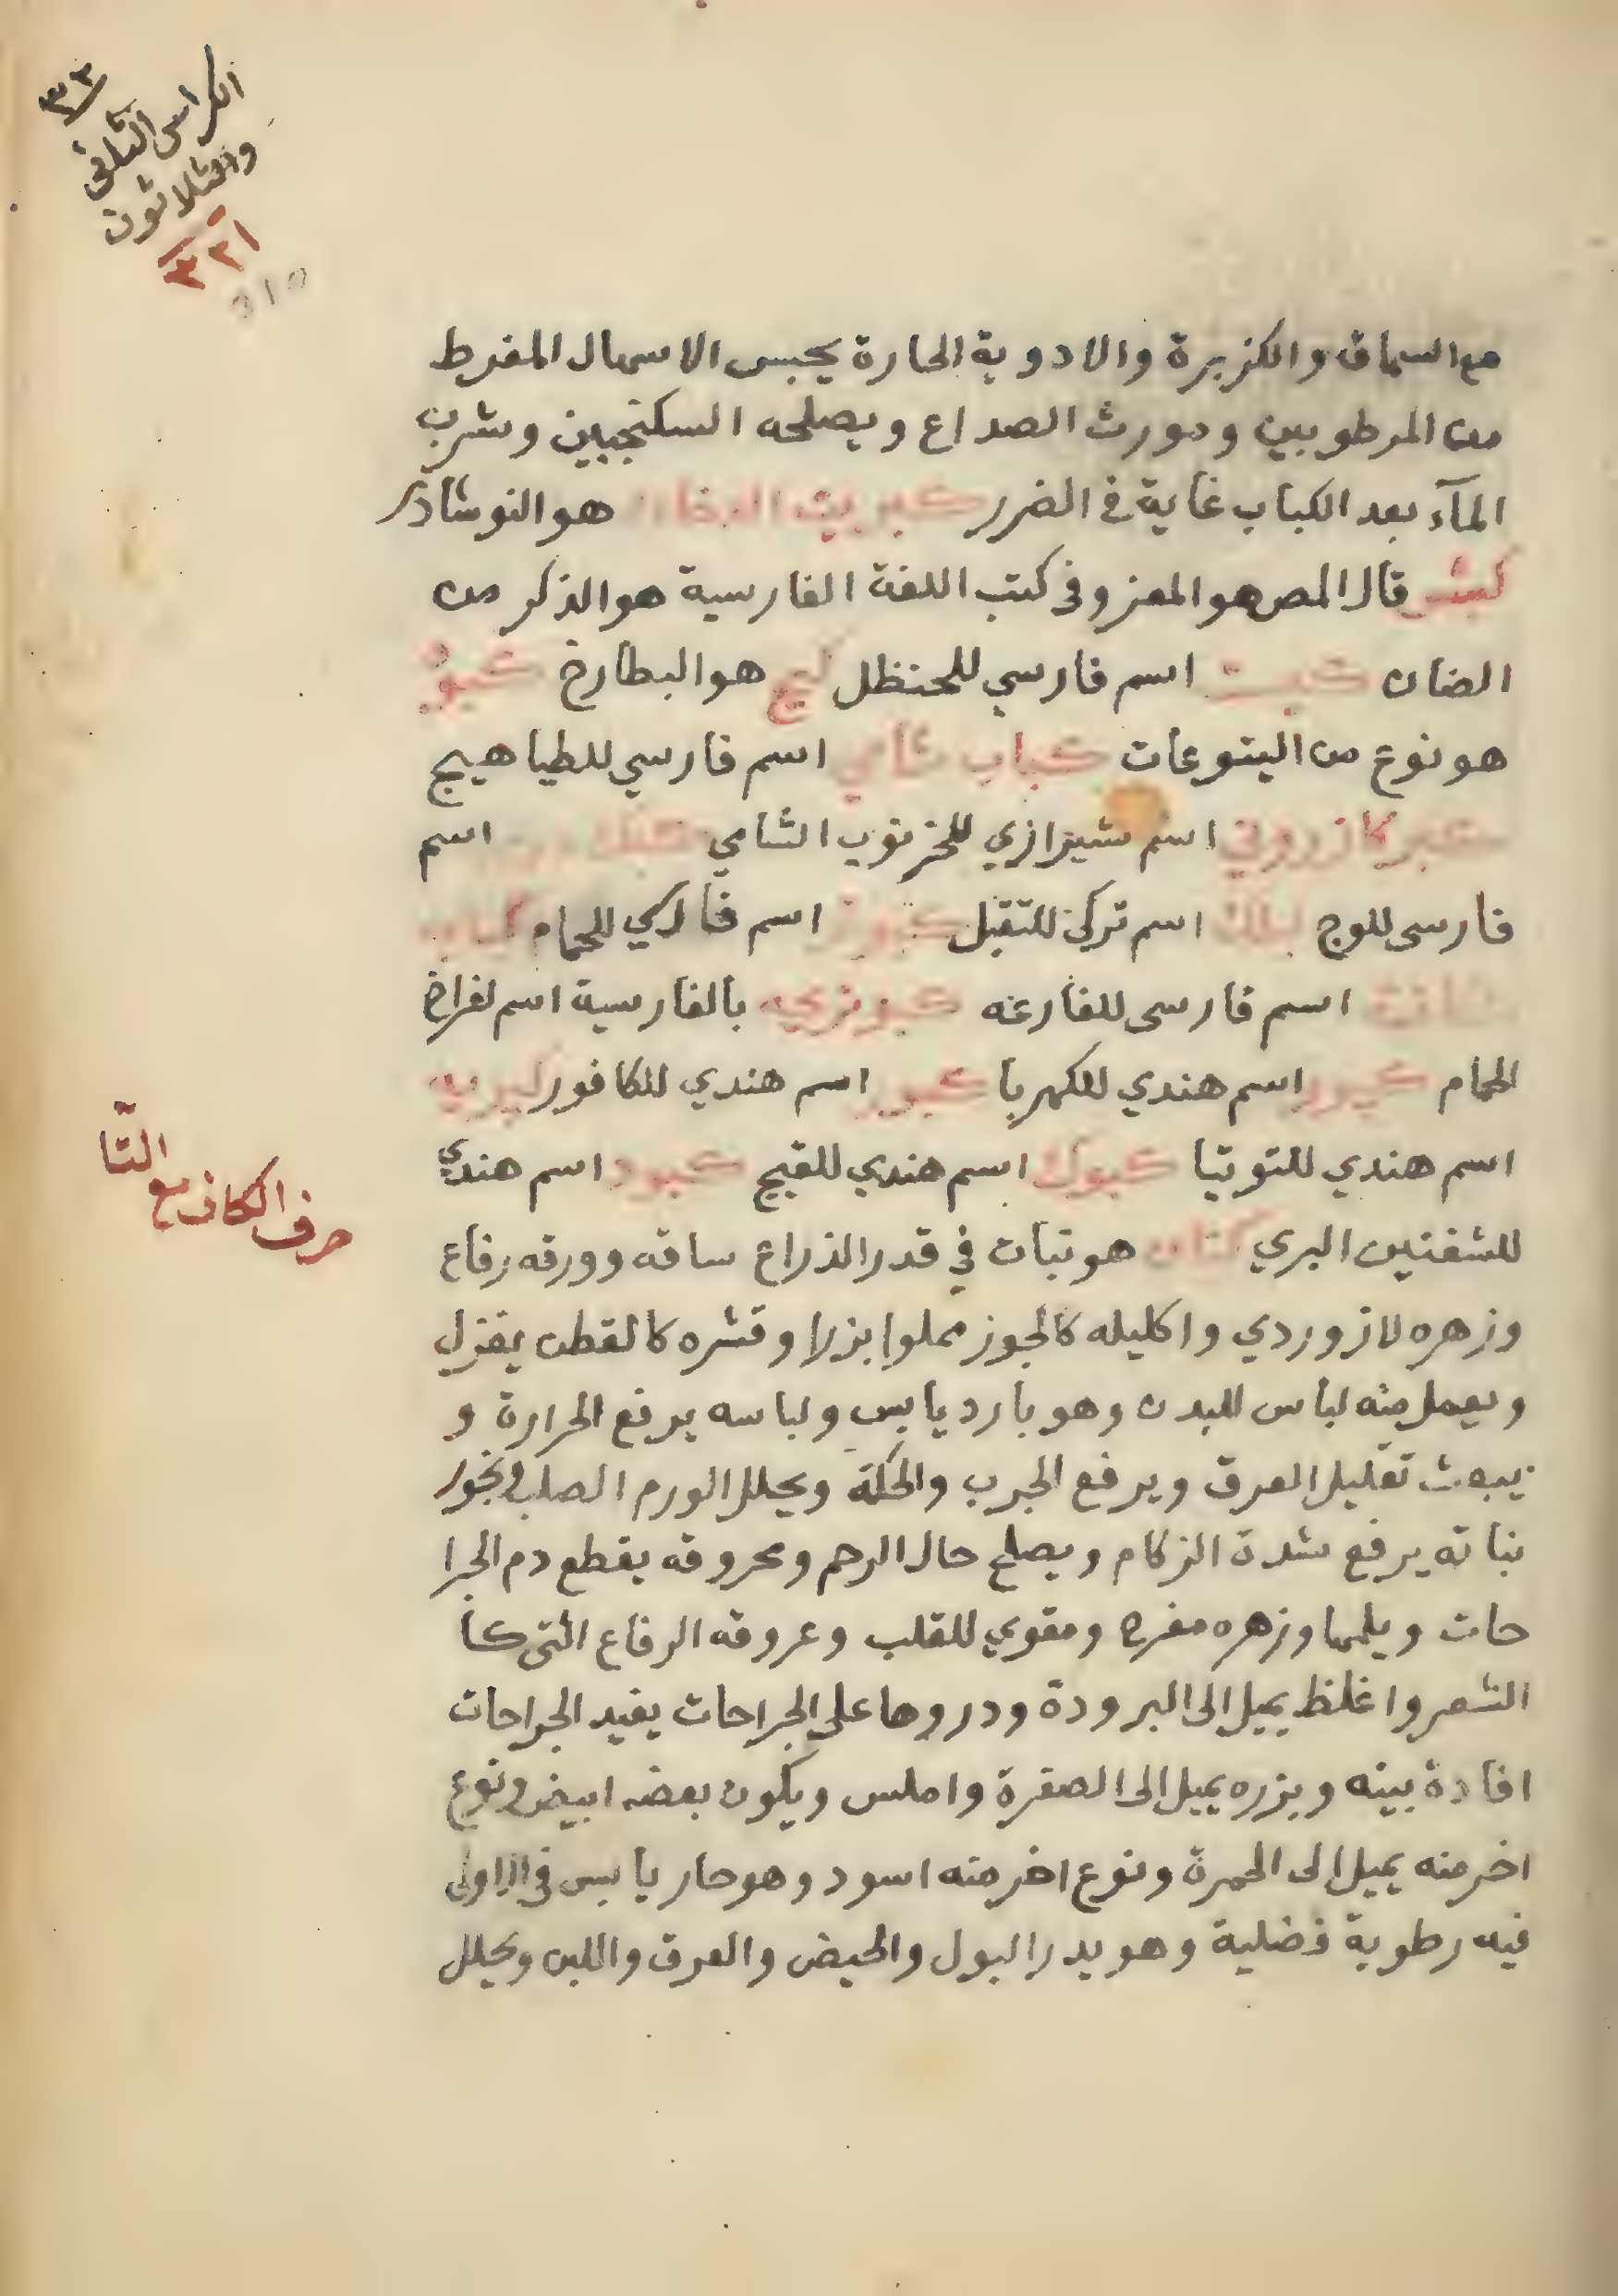 ٣٢
الكراس الثاني
والثلاثون
٣٢١
مع السماق والكزبرة والادوية الحارة يحبس الاسهال المفرط
من المرطوبين ومورث الصداع ويصلحه السكنجبين وشرب
المآء بعد الكباب غاية في الضرر كبريت الدخان هو النوشادر
كبش قال المص هو المعز وفي كتب اللغة الفارسية هو الذكر من
الضان كبست اسم فارسي للحنظل كبج هو البطارخ
هو نوع من اليتوعات كباب شامي اسم فارسي للطياهيج
كبر كازروني اسم شيرازي للخرنوب الشامي اسم
فارسى للوج اسم تركي اسم فارسي للحمام
اسم فارسى للفارعه بالفارسية اسم لفراخ
الحمام اسم هندي للكهربا كبور اسم هندي للكافور
اسم هندي للتوتيا كبوك اسم هندي للقبج كبود اسم هندي
للشفنين البري كتان هو نبات في قدر الذراع ساقه وورقه رفاع
وزهره لازوردي واكليله كالجوز مملوا بزرا وقشره كالقطن يغزل
ويعمل منه لباس للبدن وهو بارد يابس ولباسه يرفع الحرارة و
يبعث تقليل العرق ويرفع الجرب والحكة ويحلل الورم الصلب وبخور
نباته يرفع شدة الزكام ويصلح حال الرحم ومحروقه يقطع دم الجرا
حات ويلمها وزهره مفرح ومقوي للقلب وعروقه الرفاع التى كا
الشعر واغلظ يميل الى البرودة ودروها على الجراحات يفيد الجراحات
افادة بينه وبزره يميل الى الصفرة واملس ويكون بعضه ابيض ونوع
اخر منه يميل الى الحمرة ونوع اخر منه اسود وهو حار يابس في الاولى
فيه رطوبة فضلية وهو يدر البول والحيض والعرق واللبن ويحلل
حرف الكاف مع التّا